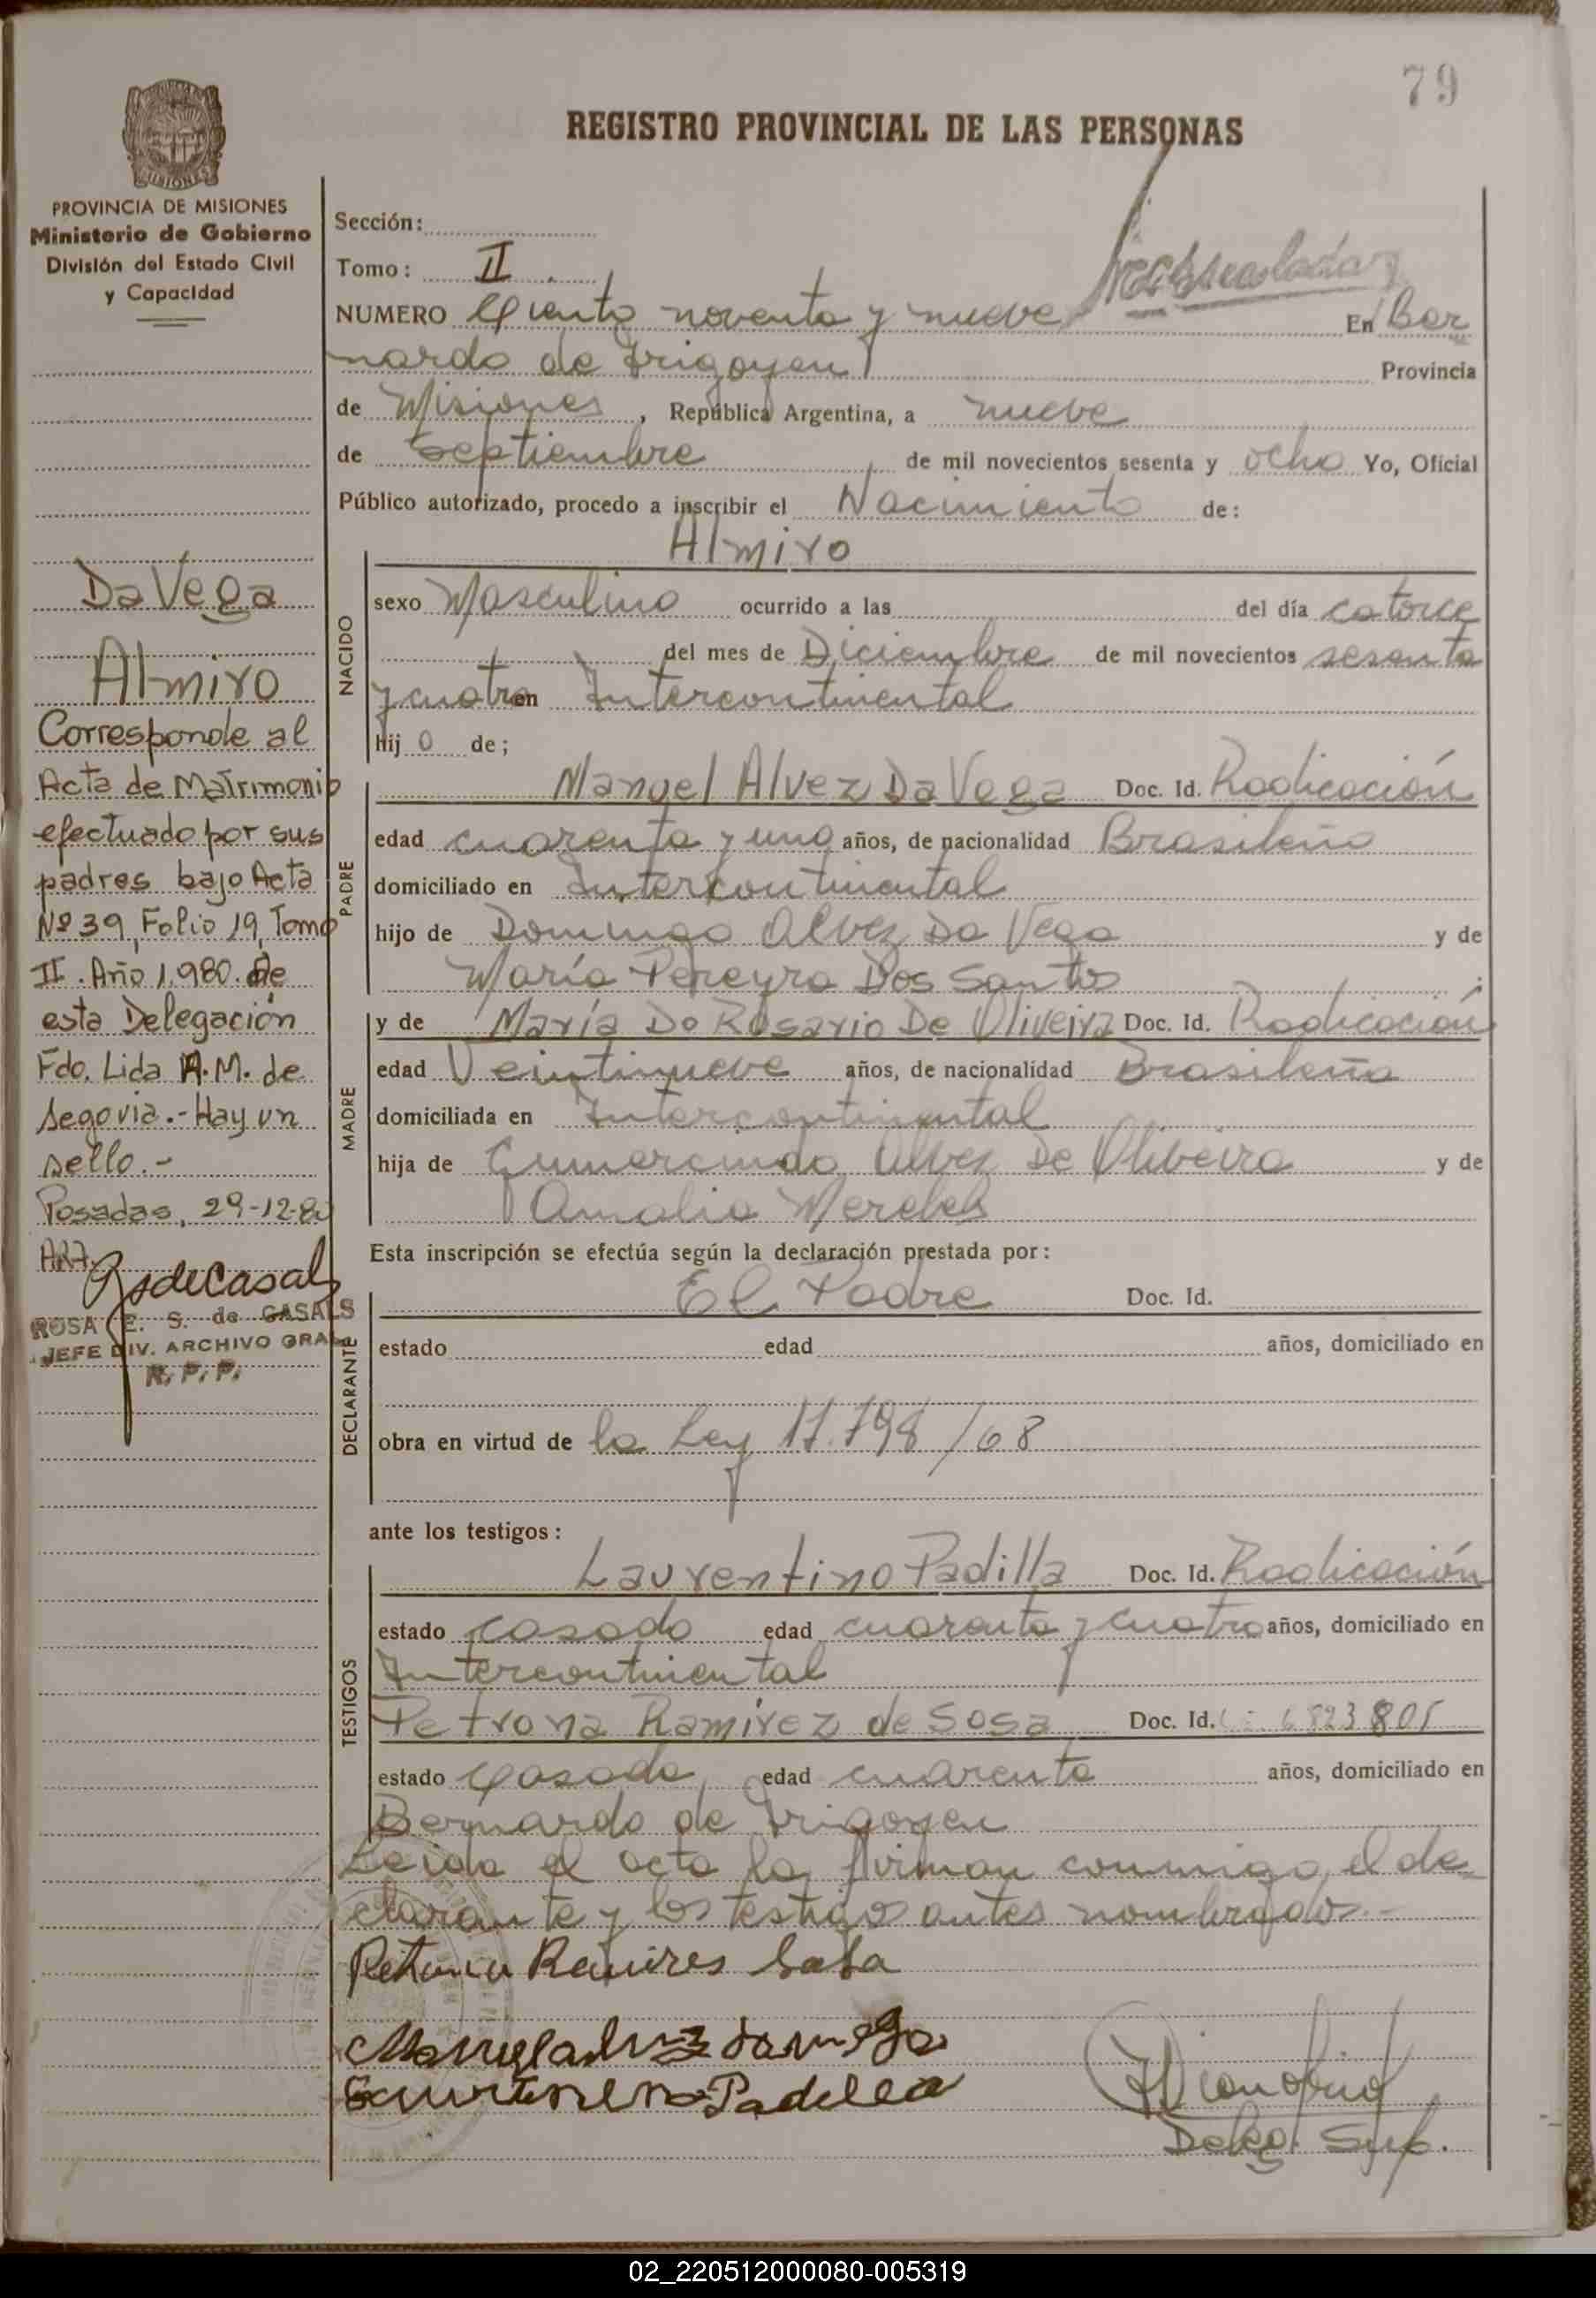 79
REGISTRO PROVINCIAL DE LAS PERSONAS
MISIONES
PROVINCIA DE MISIONES
Ministerio de Gobierno
División del Estado Civil
y Capacidad
Da Vega
Almiro
Corresponde al
Acta de Matrimonio
efectuado por sus
padres bajo Acta
Nº 39, Folio 19, Tomo
II. Año 1.980. de
esta Delegación
Fdo. Lida A.M. de
Segovia.- Hay un
sello.-
Posadas, 29-12-80
ROSA E. S. de CASALS
JEFE DIV. ARCHIVO GRAL
R. P. P.
Sección:
Tomo: II
NUMERO Ciento noventa y nueve En Ber
nardo de Irigoyen Provincia
de Misiones, República Argentina, a nueve
de Septiembre de mil novecientos sesenta y ocho Yo, Oficial
Público autorizado, procedo a inscribir el Nacimiento de:
NACIDO
Almiro
sexo Masculino ocurrido a las del día catorce
del mes de Diciembre de mil novecientos sesenta
y cuatro en Intercontinental
hij o de;
PADRE
Manuel Alvez Da Vega Doc. Id. Radicación
edad cuarenta y uno años, de nacionalidad Brasileño
domiciliado en Intercontinental
hijo de Domingo Alvez Da Vega y de
María Pereyra Dos Santos
MADRE
y de María Do Rosario De Oliveira Doc. Id. Radicación
edad Veintinueve años, de nacionalidad Brasileña
domiciliada en Intercontinental
hija de Gumercindo Alvez De Oliveira y de
Amalia
Esta inscripción se efectúa según la declaración prestada por:
DECLARANTE
El Padre Doc. Id.
estado edad años, domiciliado en
obra en virtud de la Ley 17.798/68
ante los testigos:
TESTIGOS
Laurentino Padilla Doc. Id. Radicación
estado casado edad cuarenta y cuatro años, domiciliado en
Intercontinental
Petrona Ramirez de Sosa Doc. Id. 6823801
estado Casada edad cuarenta años, domiciliado en
Bernardo de Irigoyen
Leida el acta la firman conmigo, el de-
clarante y los testigos antes nombrados.-
Ramires Sosa
Padilla
Deleg. Sup.
02_220512000080-005319